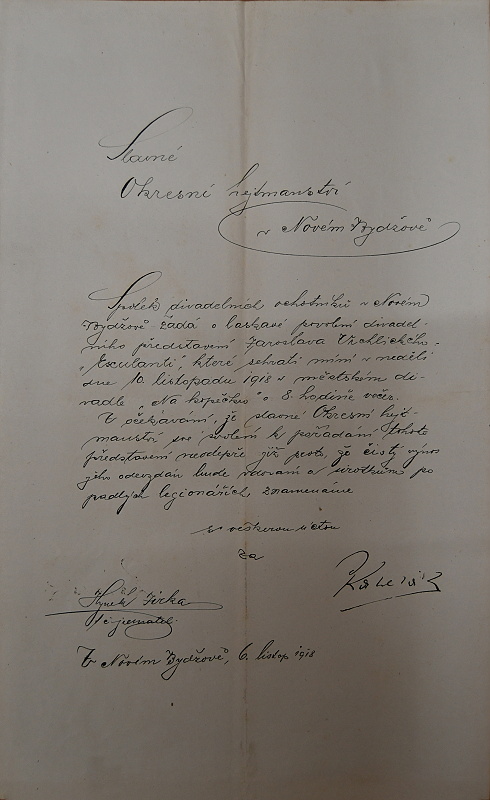 Slavné
Okresní hejtmanství
v Novém Bydžově
Spolek divadelních ochotníků v Novém
Bydžově žádá o laskavé povolení divadel-
ního představení Jaroslava Vrchlického
"Exulanti", které sehrati míní v neděli
dne 10. listopadu 1918 v městském di-
vadle "Na kopečku" o 8. hodině večer.
V očekávání, že slavné Okresní hejt-
manství své svolení k pořádání tohoto
představení neodepře již proto, že čistý výnos
jeho odevzdán bude vdovám a sirotkům po
padlých legionářích znamenáme
se veškerou úctou
za
Hynek Jirka
jednatel.
V Novém Bydžově, 6. listop 1918